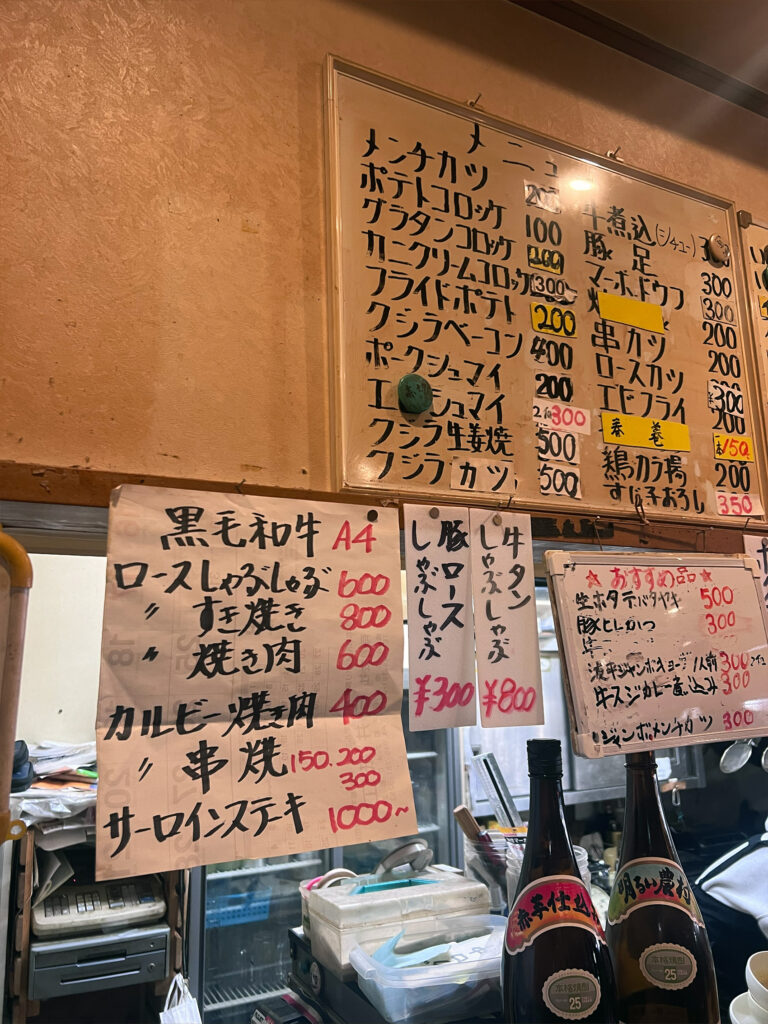 メニュー
メンチカツ 200
ポテトコロッケ 100
グラタンコロッケ 200
カニクリームコロッケ 300
フライドポテト 200
クジラベーコン 400
ポークシュマイ 200
エ シュマイ 300
クジラ生姜焼 500
クジラカツ 500
牛煮込(シチュー)
豚足 300
マーボドウフ 300
200
串カツ 200
ロースカツ 300
エビフライ 200
春巻 150
鶏カラ揚 200
すじ
350
黒毛和牛 A4
ロースしゃぶしゃぶ 600
〃 すき焼き 800
〃 焼き肉 600
カルビー焼き肉 400
〃 串焼 150.200
300
サーロインステーキ 1000~
豚ロース
しゃぶしゃぶ
¥300
牛タン
しゃぶしゃぶ
¥800
☆おすすめ品☆
生ホタテバタヤキ 500
豚ヒレかつ 300
ジャンボギョーザ 1人前 300
牛スジカレー煮込み 300
ジャンボメンチカツ 300
赤芋仕込み
本格焼酎
25
明るい農村
本格焼酎
25